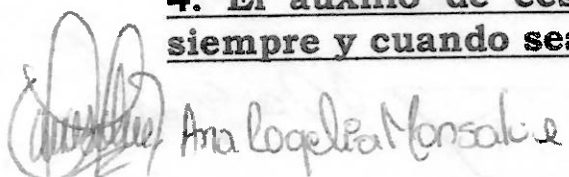 4. El auxilio de ces
siempre y cuando sea
Ana Rogelia Monsalve